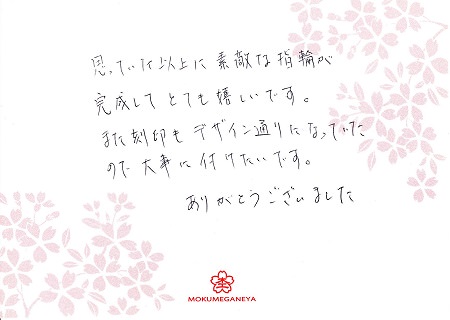 思っていた以上に素敵な指輪が
完成してとても嬉しいです。
また刻印もデザイン通りになっていた
ので大事に付けたいです。
ありがとうございました
MOKUMEGANEYA